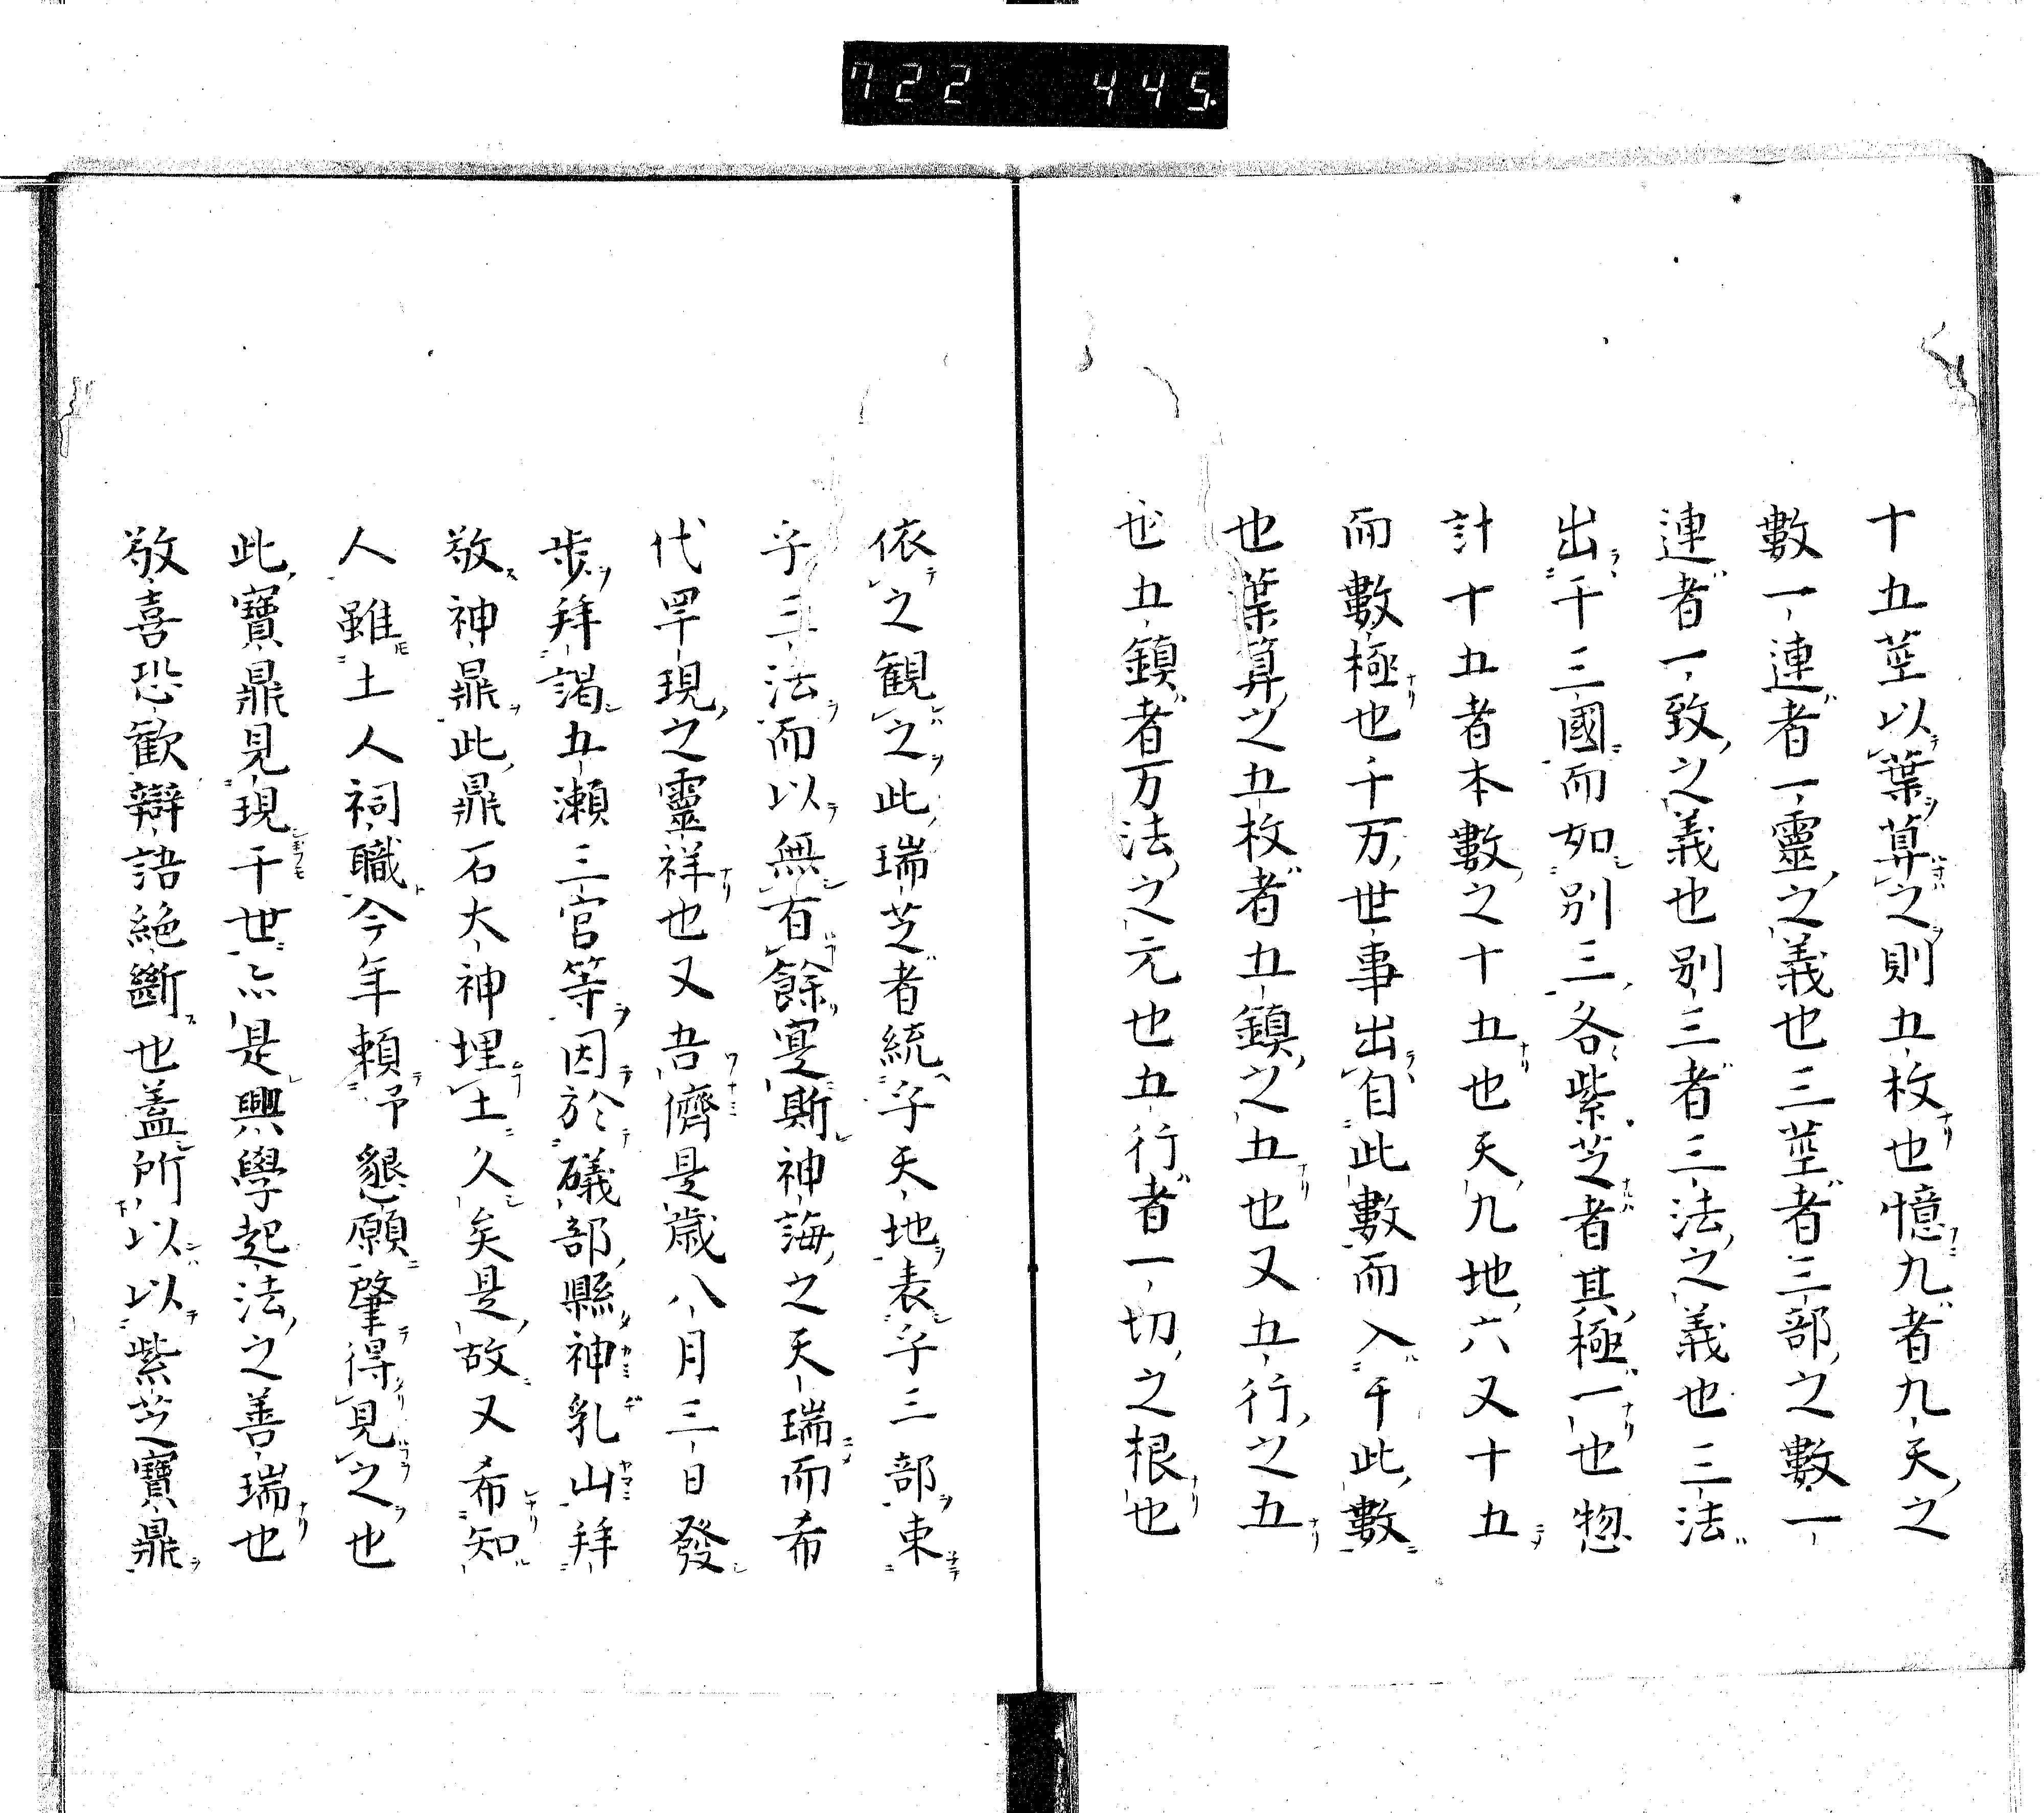 722 445
十五莖以葉算之則五枚也憶九者九天之
數一連者一靈之義也三莖者三部之數一
連者一致之義也別三者三法之義也三法
出于三國而如別三各紫芝者其極一也惣
計十五者本數之十五也天九地六又十五
而數極也千万世事出自此數而入于此數
也葉算之五枚者五鎮之五也又五行之五
也五鎮者万法之元也五行者一切之根也
依之観之此瑞芝者統乎天地表乎三部束
乎三法而以無有餘寔斯神誨之天瑞而希
代罕現之靈祥也又吾儕是歳八月三日發
歩拜謁五瀬三宮等因於礒部縣神乳山拜
敬神鼎此鼎石大神埋土久矣是故又希知
人雖土人祠職今年頼予懇願肇得見之也
此寶鼎見現于世亦是興學起法之善瑞也
敬喜恐歓辯語絶斷也蓋所以以紫芝寶鼎